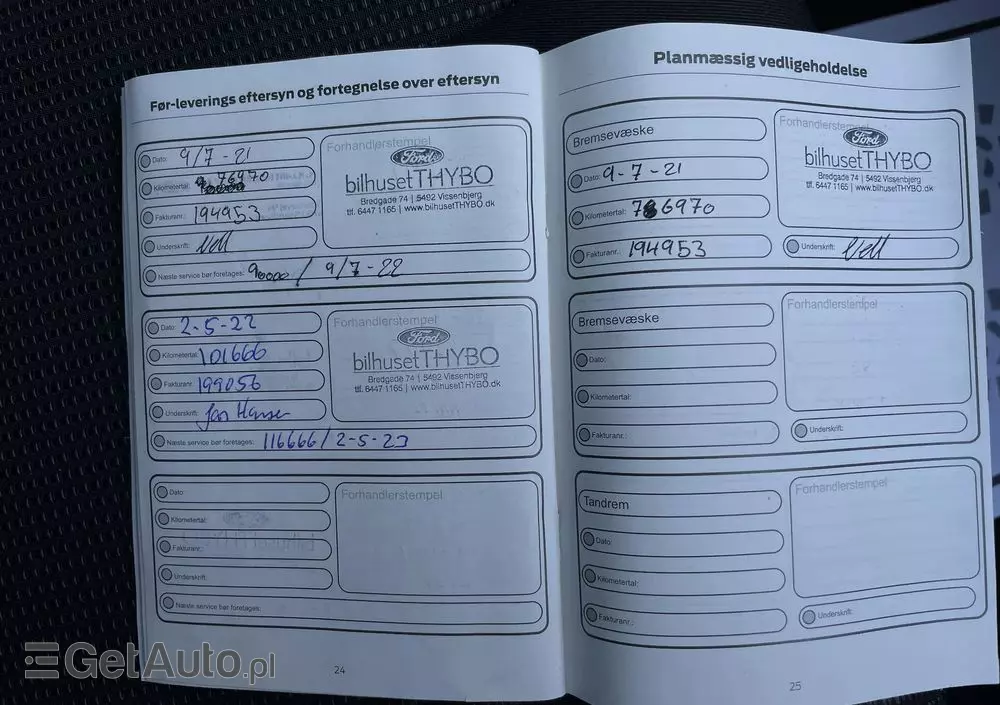 Før-leverings eftersyn og fortegnelse over eftersyn
Dato: 9/7 - 21
Kilometertal: 76970
Fakturanr.: 194953
Underskrift:
Næste service bør foretages: 90000 / 9/7 - 22
Forhandlerstempel
Ford
bilhusetTHYBO
Bredgade 74 | 5492 Vissenbjerg
tlf. 6447 1165 | www.bilhusetTHYBO.dk
Dato: 2-5-22
Kilometertal: 101666
Fakturanr. 199056
Underskrift: Jan Hansen
Næste service bør foretages: 116666 / 2-5-23
Forhandlerstempel
Ford
bilhusetTHYBO
Bredgade 74 | 5492 Vissenbjerg
tlf. 6447 1165 | www.bilhusetTHYBO.dk
Dato:
Kilometertal:
Fakturanr.:
Underskrift:
Næste service bør foretages:
Forhandlerstempel
24
Planmæssig vedligeholdelse
Bremsevæske
Dato: 9-7-21
Kilometertal: 76970
Fakturanr.: 194953
Forhandlerstempel
Ford
bilhusetTHYBO
Bredgade 74 | 5492 Vissenbjerg
tlf. 6447 1165 | www.bilhusetTHYBO.dk
Underskrift:
Bremsevæske
Dato:
Kilometertal:
Fakturanr.:
Forhandlerstempel
Underskrift:
Tandrem
Dato:
Kilometertal:
Fakturanr.:
Forhandlerstempel
Underskrift:
25
GetAuto.pl